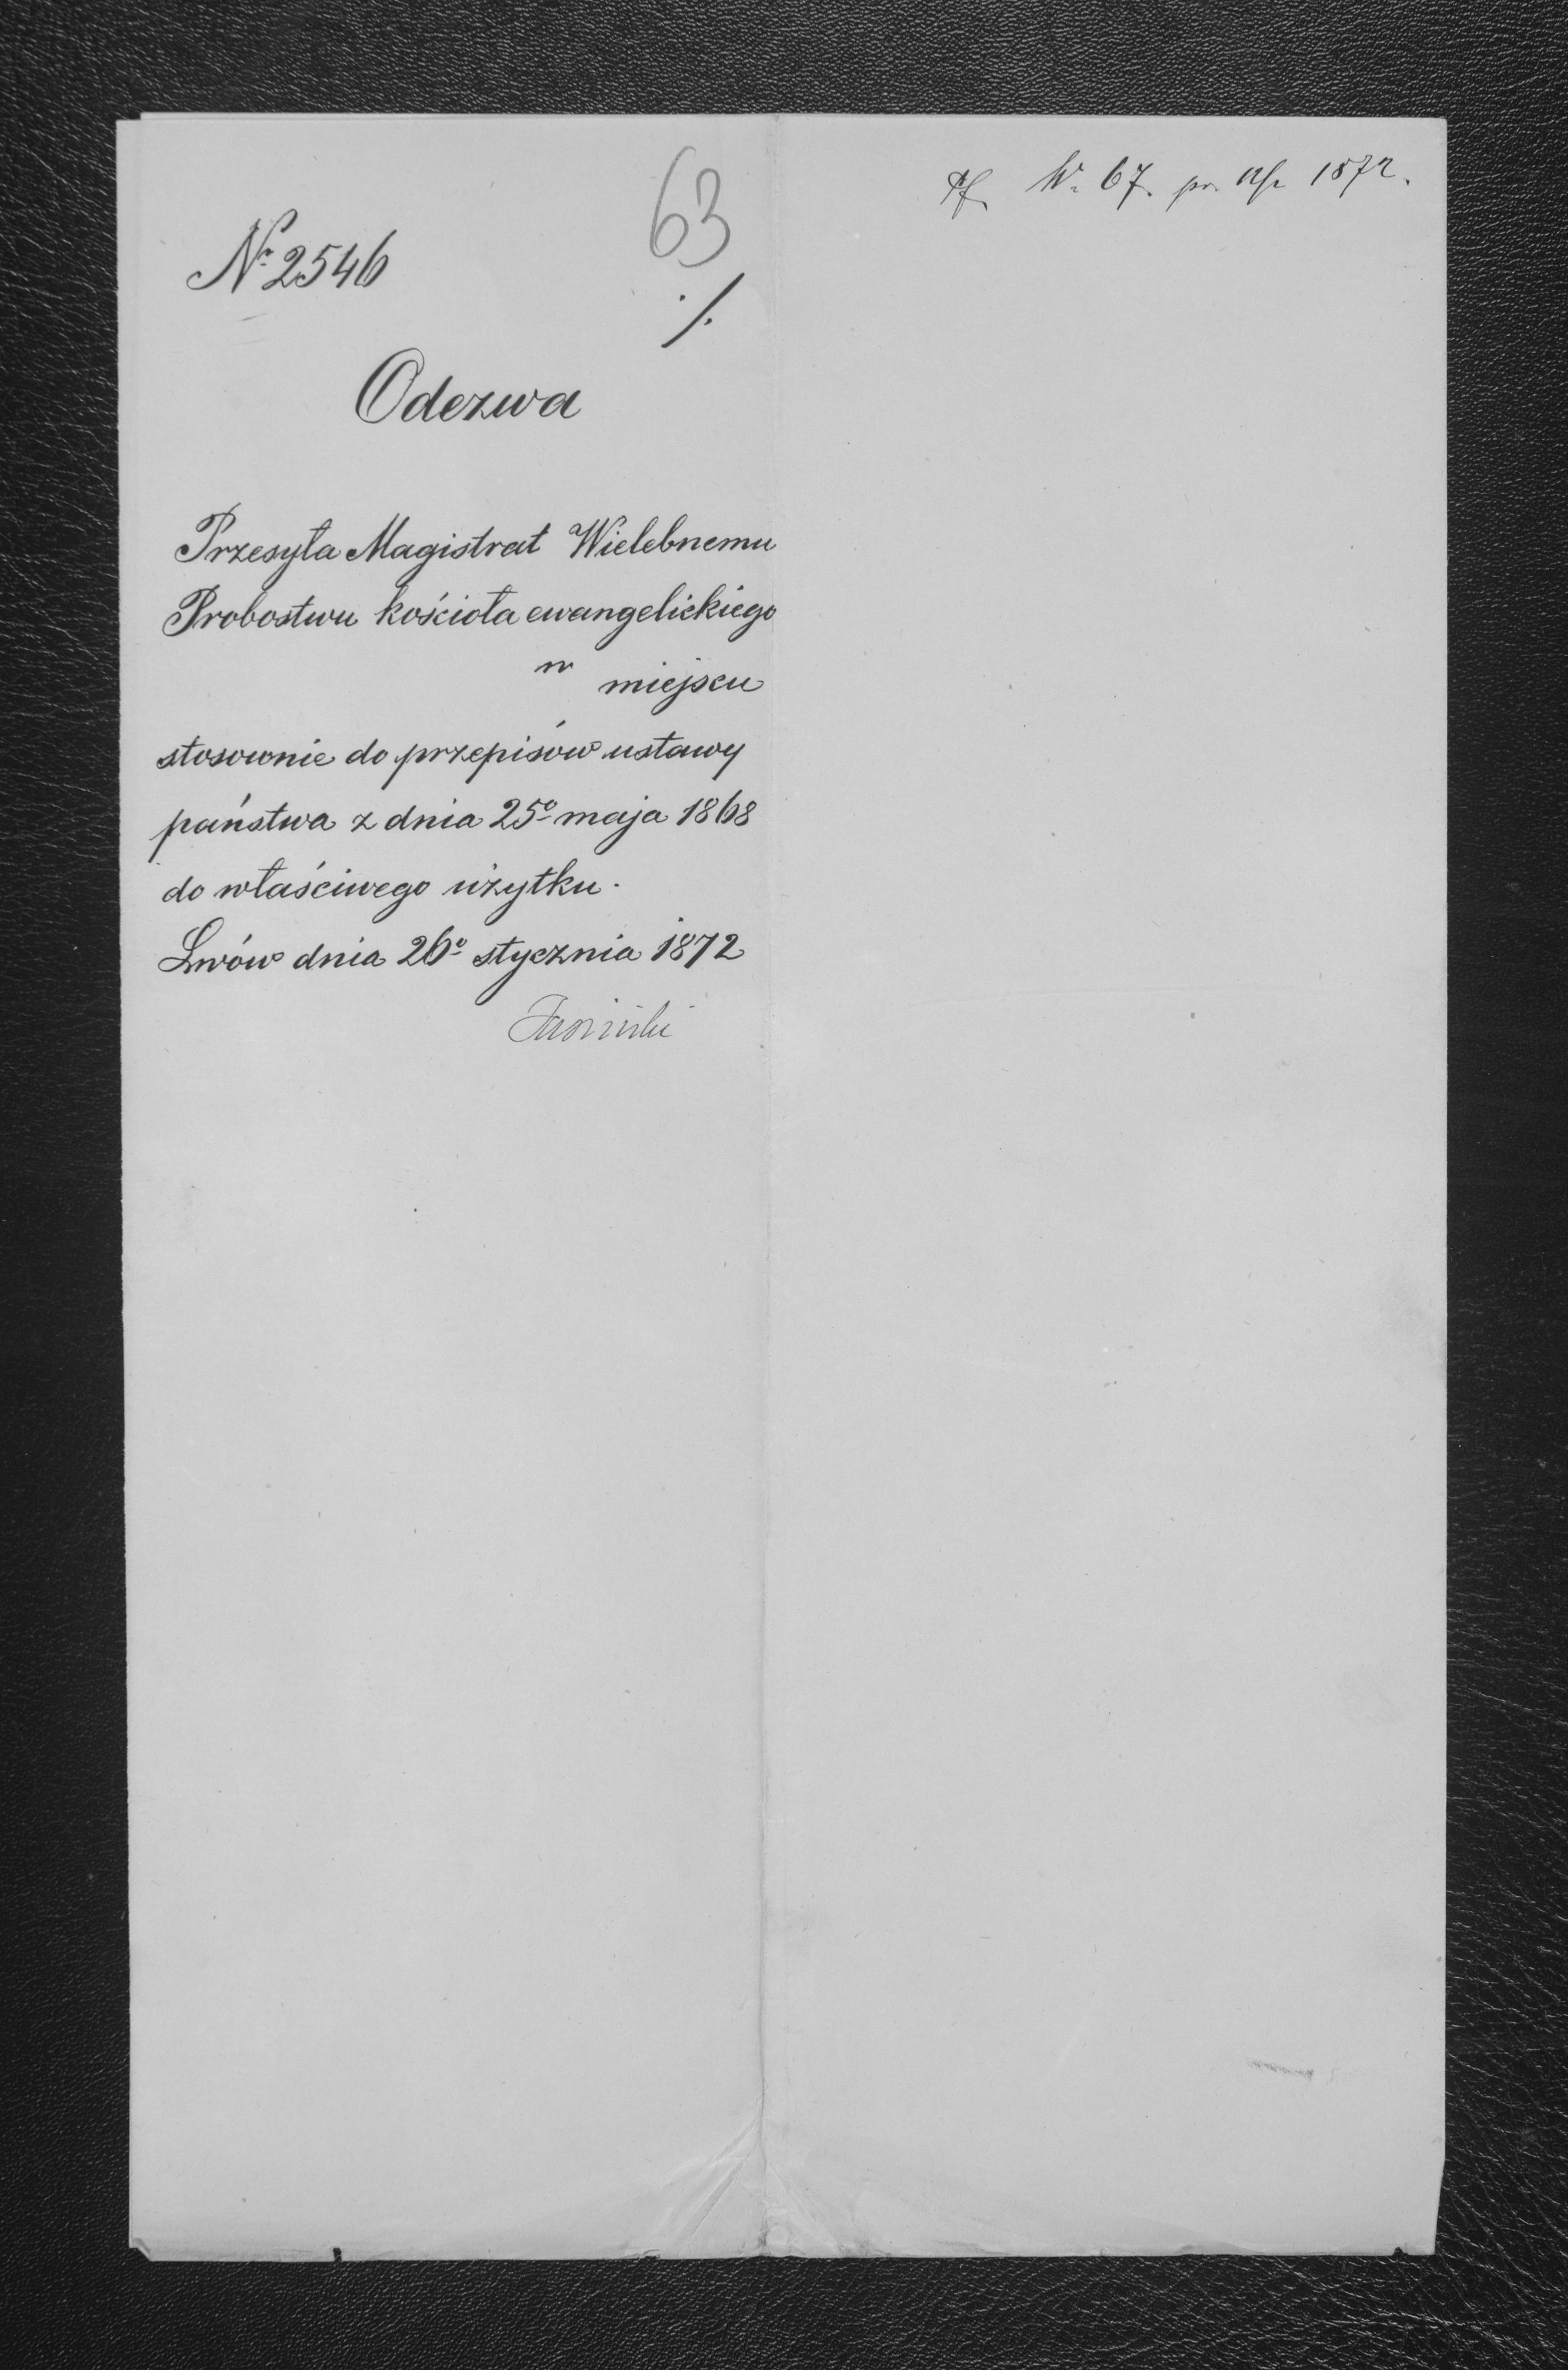 63
№ 67. pr. 1872.
№ 2546
./.
Odezwa
Przesyła Magistrat Wielebnemu
Probostwu kościoła ewangelickiego
w miejscu
stosownie do przepisów ustawy
państwa z dnia 25º maja 1868
do właściwego użytku.
Lwów dnia 26º stycznia 1872